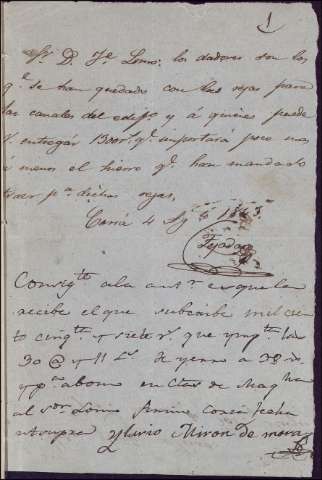 1
Sr. D. Je. Lomo: los dadores son los
qe. se han quedado con las rejas para
las canales del edifo y á quienes puede
V. entregar 1300 rs. qe. importará poco mas
ó menos el hierro qe. han mandado
traer pa. dichas rejas.
4 Ag to 1843
Tejada
Consigte a la antr. esquela
recibe el que subcribe mil cien
to cingta y siete rs. que ympte. las
30 @ y 11 Ls. de yerro a 38 rs
y pr. abono en Ctas de
al Sor. Lomo firmo con fecha
ut supra Ylario Miron de mora